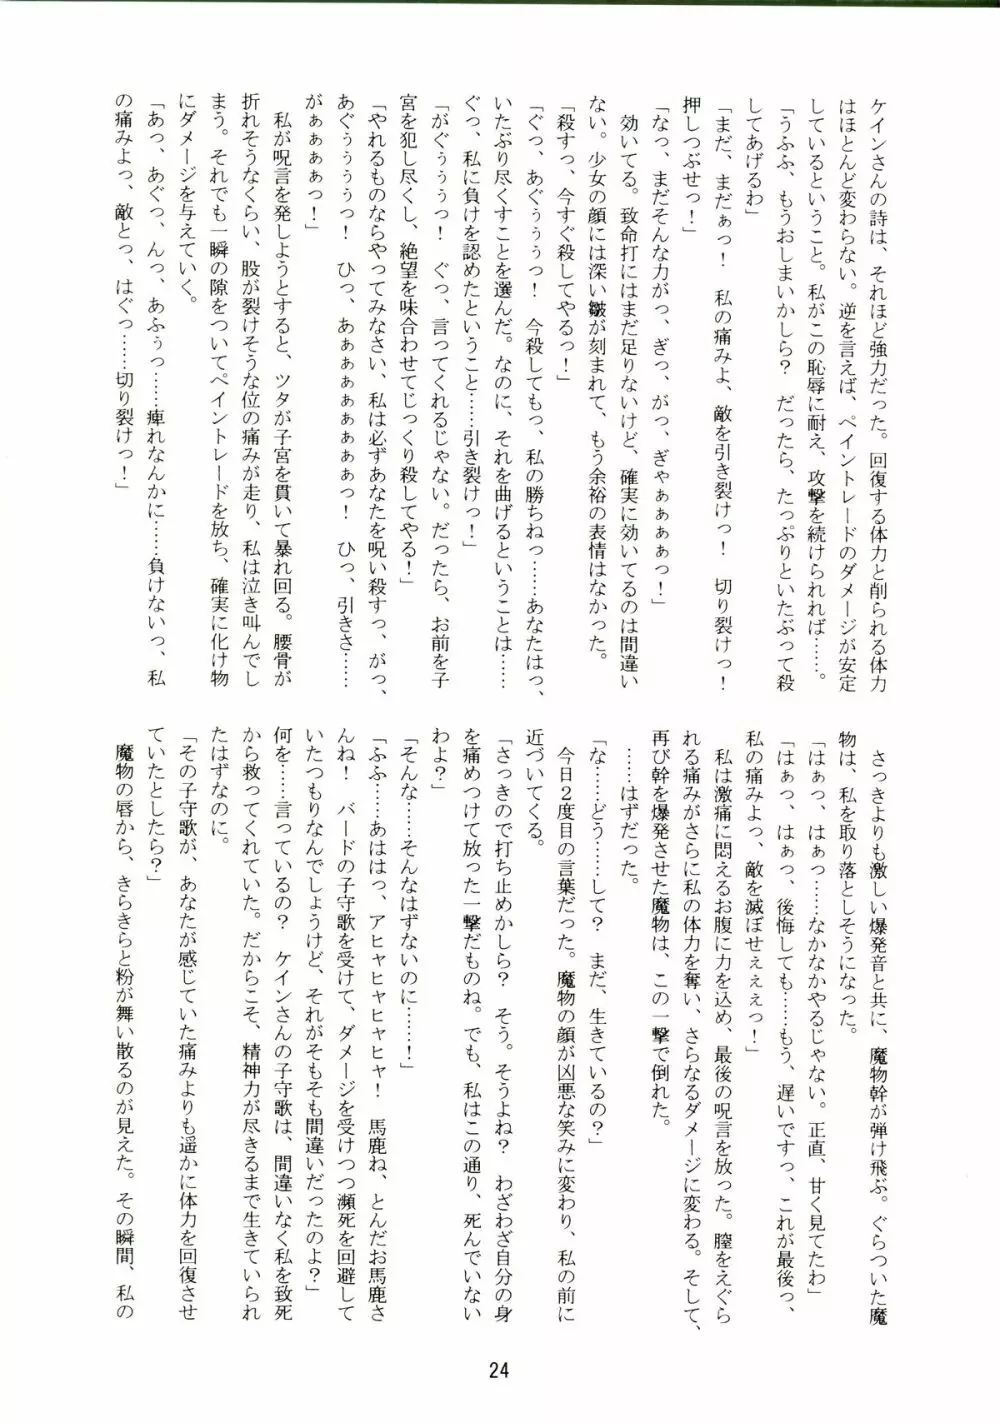 ケインさんの詩は、それほど強力だった。回復する体力と削られる体力
はほとんど変わらない。逆を言えば、ペイントレードのダメージが安定
しているということ。私がこの恥辱に耐え、攻撃を続けられれば……。
「うふふ、もうおしまいかしら？　だったら、たっぷりといたぶって殺
してあげるわ」
「まだ、まだぁっ！　私の痛みよ、敵を引き裂けっ！　切り裂けっ！
押しつぶせっ！」
「なっ、まだそんな力がっ、ぎっ、がっ、ぎゃぁぁぁぁっ！」
　効いてる。致命打にはまだ足りないけど、確実に効いてるのは間違い
ない。少女の顔には深い皺が刻まれて、もう余裕の表情はなかった。
「殺すっ、今すぐ殺してやるっ！」
「ぐっ、あぐぅぅぅっ！　今殺してもっ、私の勝ちねっ……あなたはっ、
いたぶり尽くすことを選んだ。なのに、それを曲げるということは……
ぐっ、私に負けを認めたということ……引き裂けっ！」
「がぐぅぅぅっ！　ぐっ、言ってくれるじゃない。だったら、お前を子
宮を犯し尽くし、絶望を味合わせてじっくり殺してやる！」
「やれるものならやってみなさい、私は必ずあなたを呪い殺すっ、がっ、
あぐぅぅぅぅっ！　ひっ、あぁぁぁぁぁぁぁっ！　ひっ、引きさ……
がぁぁぁぁっ！」
　私が呪言を発しようとすると、ツタが子宮を貫いて暴れ回る。腰骨が
折れそうなくらい、股が裂けそうな位の痛みが走り、私は泣き叫んでし
まう。それでも一瞬の隙をついてペイントレードを放ち、確実に化け物
にダメージを与えていく。
「あっ、あぐっ、んっ、あふぅっ……痺れなんかに……負けないっ、私
の痛みよっ、敵とっ、はぐっ……切り裂けっ！」
　さっきよりも激しい爆発音と共に、魔物幹が弾け飛ぶ。ぐらついた魔
物は、私を取り落としそうになった。
「はぁっ、はぁっ……なかなかやるじゃない。正直、甘く見てたわ」
「はぁっ、はぁっ、後悔しても……もう、遅いですっ、これが最後っ、
私の痛みよっ、敵を滅ぼせぇぇぇっ！」
　私は激痛に悶えるお腹に力を込め、最後の呪言を放った。膣をえぐら
れる痛みがさらに私の体力を奪い、さらなるダメージに変わる。そして、
再び幹を爆発させた魔物は、この一撃で倒れた。
……はずだった。
「な……どう……して？　まだ、生きているの？」
　今日２度目の言葉だった。魔物の顔が凶悪な笑みに変わり、私の前に
近づいてくる。
「さっきので打ち止めかしら？　そう。そうよね？　わざわざ自分の身
を痛めつけて放った一撃だものね。でも、私はこの通り、死んでいない
わよ？」
「そんな……そんなはずないのに……！」
「ふふ……あははっ、アヒャヒャヒャヒャ！　馬鹿ね、とんだお馬鹿さ
んね！　バードの子守歌を受けて、ダメージを受けつつ瀕死を回避して
いたつもりなんでしょうけど、それがそもそも間違いだったのよ？」
何を……言っているの？　ケインさんの子守歌は、間違いなく私を致死
から救ってくれていた。だからこそ、精神力が尽きるまで生きていられ
たはずなのに。
「その子守歌が、あなたが感じていた痛みよりも遥かに体力を回復させ
ていたとしたら？」
　魔物の唇から、きらきらと粉が舞い散るのが見えた。その瞬間、私の
24